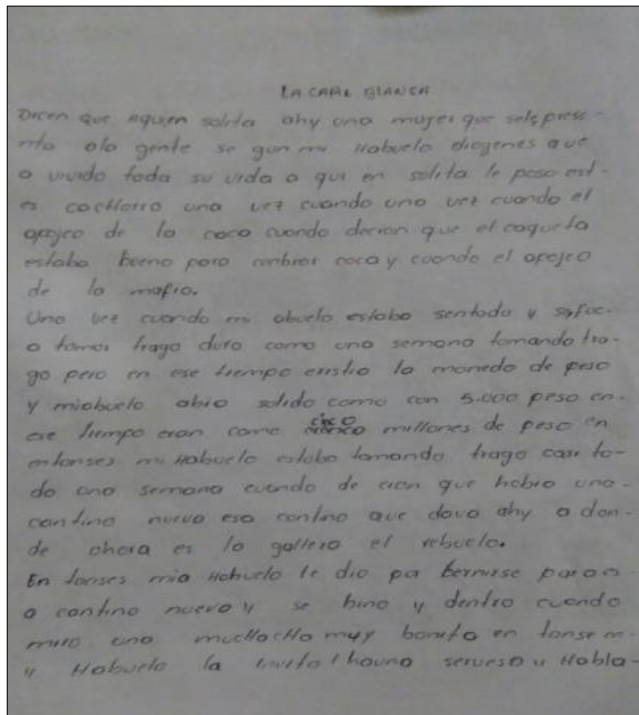 LA CARE BLANCA
Dicen que aquien solita ahy una mujer que seles prese-
nta ala gente se gun mi Habuelo diogenes que
a vivido toda su vida a qui en solita le paso est-
es cacHorro una vez cuando una vez cuando el
apojeo de la coca cuando decian que el caqueta
estaba bueno para cenbrar coca y cuando el apojeo
de la mafia.
Una vez cuando mi abuelo estaba sentado y
a tomar trago duro como una semana tomando tra-
go pero en ese tiempo existia la moneda de peso
y miabuelo abia salido como con 5.000 peso en
ese tiempo eran como cinco millones de peso en
entonses mi Habuelo estaba tomando trago casi to-
do una semana cuando de cian que habia una
cantina nueva esa cantina que dava ahy a don-
de ahora es la gallera el rebuelo.
En tonses mia Habuelo le dio por benirse para
a cantina nueva y se bino y dentro cuando
miro una mucHacHa muy bonita en tonse m-
y Habuelo la invita haunа servesa y Habla-